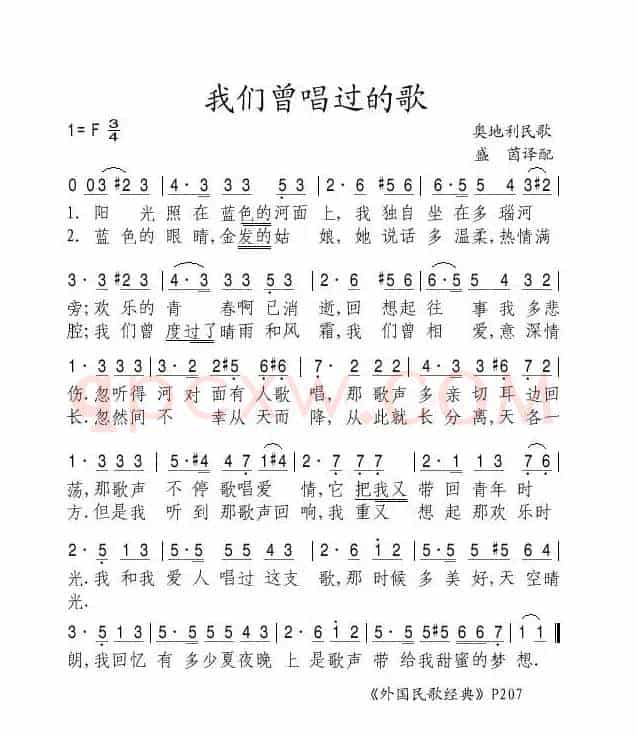 我们曾唱过的歌
1=F 3/4
奥地利民歌
盛 茵译配
0 03 #23 | 4·3 33 53 | 2·6 #56 | 6·5 54 3#2 |
1. 阳 光 照 在 蓝色的河面 上,我 独自 坐 在 多 瑙河
2. 蓝 色的 眼 睛,金发的姑 娘,她 说话 多 温柔,热情满
3·3 #23 | 4·3 33 53 | 2·6 #56 | 6·5 54 #23 |
旁;欢 乐的 青 春啊 已消 逝,回 想起 往 事 我 多悲
腔;我 们曾 度过了 晴雨 和风 霜,我 们曾 相 爱,意 深情
1·3 33 | 3· 2#5 6#6 | 7·2 22 | 4·3 3#6 7 |
伤.忽 听得 河 对面 有人歌 唱,那 歌声 多 亲 切 耳 边回
长.忽 然间 不 幸从 天而 降,从 此就 长 分离,天 各一
荡,那歌声 不 停 歌唱爱 情,它 把我又 带 回 青年 时
方.但是我 听 到 那歌声回 响,我 重又 想 起 那欢 乐时
2·5 13 | 5·5 55 51 | 3·4 34 | 2·2 12 53 |
光.我 和我 爱 人 唱过 这支 歌,那 时候 多 美 好,天 空晴
光.
朗,我回忆 有 多少夏夜晚 上 是 歌声 带 给我甜蜜的梦 想.
《外国民歌经典》P207